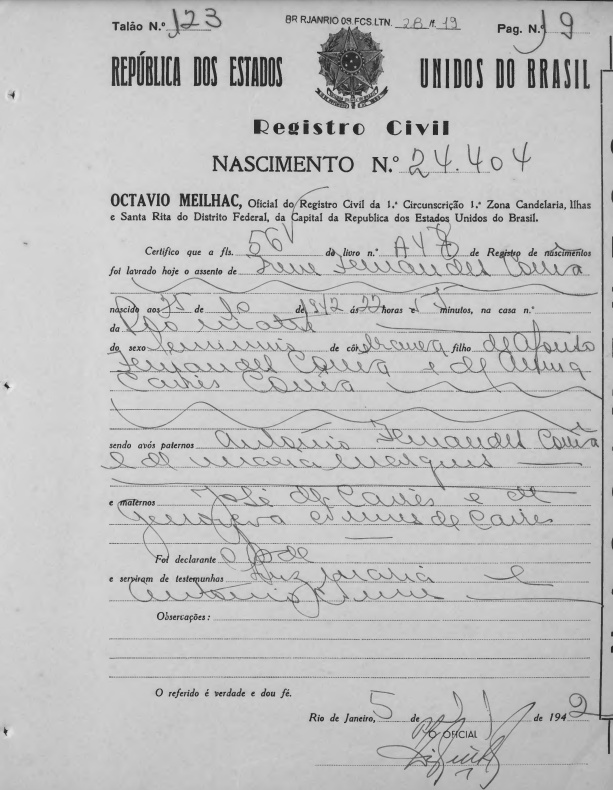 Talão N.º 123
BR RJANRIO 08.FCS.LTN. 28 n. 19
Pag. N.º 19
REPÚBLICA DOS ESTADOS UNIDOS DO BRASIL
Registro Civil
NASCIMENTO N.º 24.404
OCTAVIO MEILHAC, Oficial do Registro Civil da 1.ª Circunscrição 1.ª Zona Candelaria, Ilhas
e Santa Rita do Distrito Federal, da Capital da Republica dos Estados Unidos do Brasil.
Certifico que a fls. 56v do livro n.º de Registro de nascimentos
foi lavrado hoje o assento de Fernandes Corrêa
nascido aos 25 de 10 de 1942 ás 22 horas e minutos, na casa n.º
da Pro Matre
do sexo feminino de côr branca filho de Afonso
Fernandes Corrêa e de
Corrêa
sendo avós paternos Antonio Fernandes Corrêa
e de Maria Marques
e maternos José de e de
Nunes de
Foi declarante
e serviram de testemunhas Luiz Maria e
Antonio Nunes
Observações :
O referido é verdade e dou fé.
Rio de Janeiro, 5 de 11 de 1942
O OFICIAL